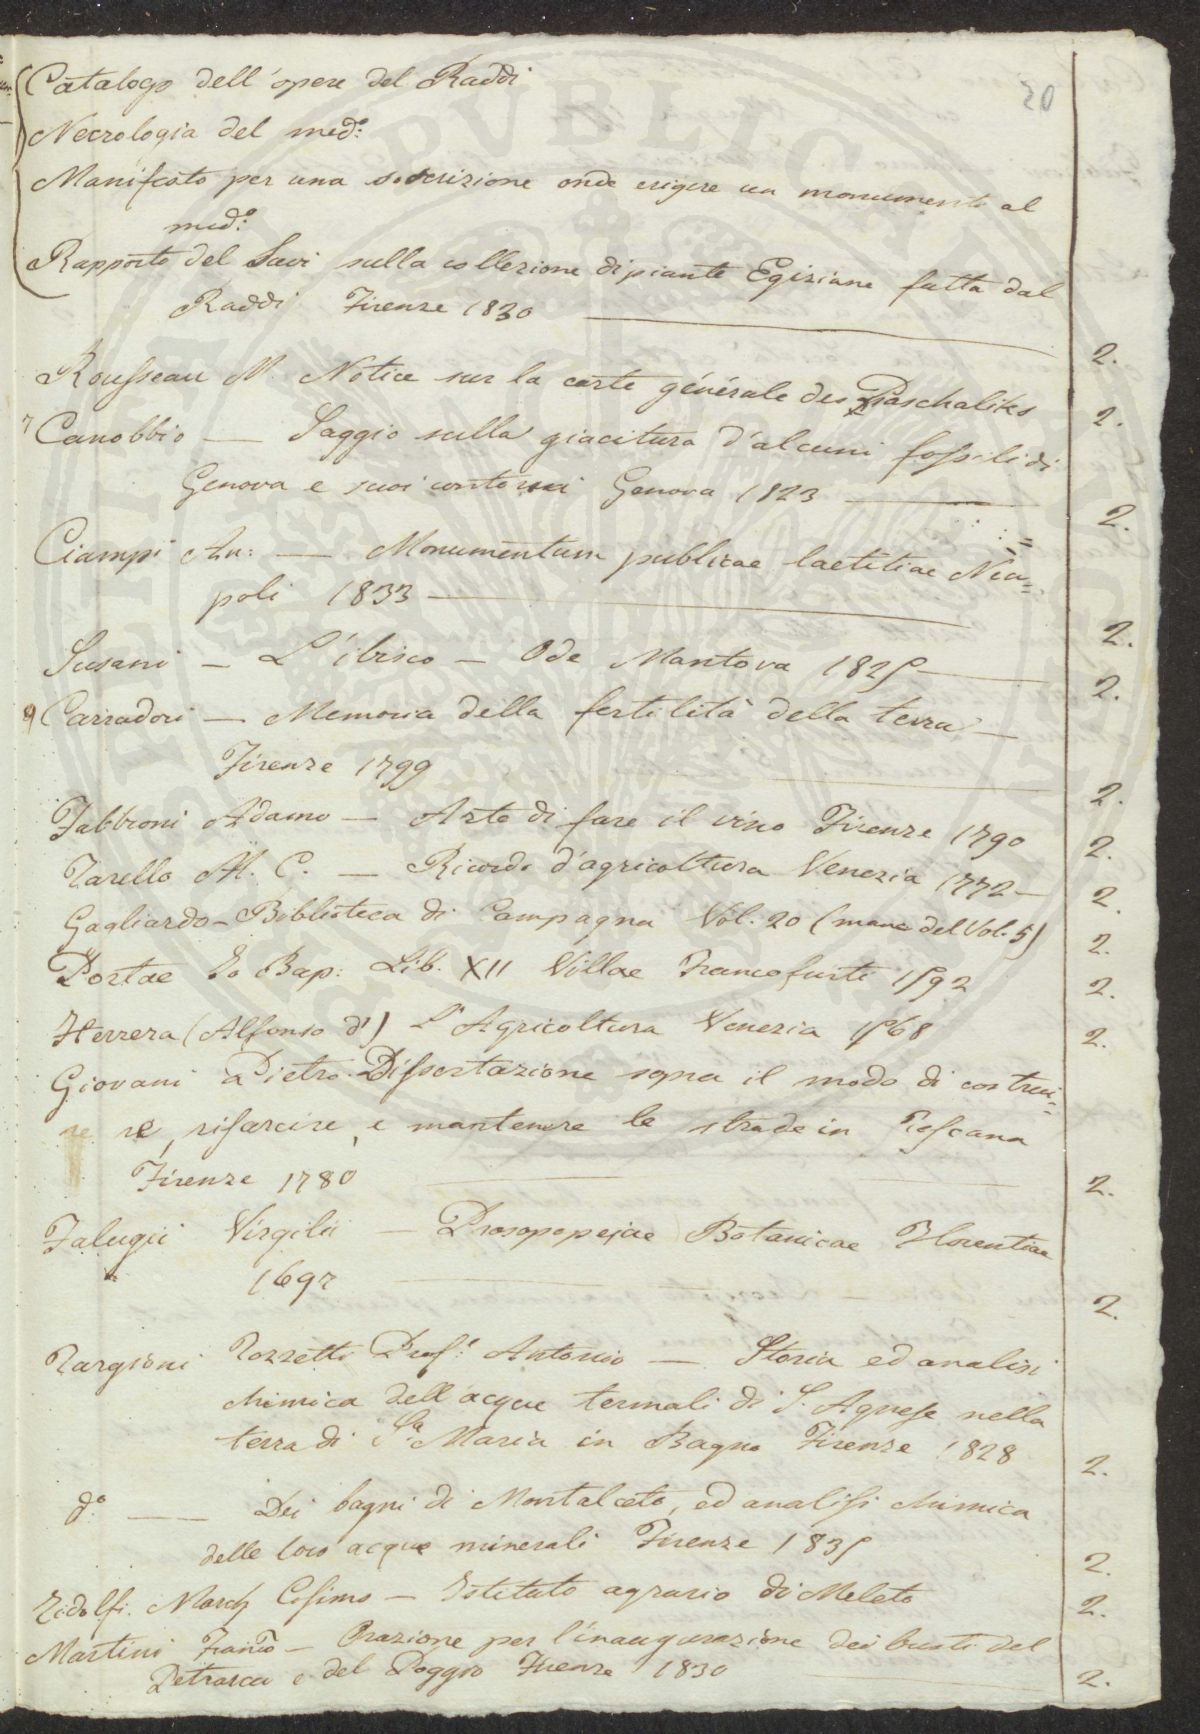 20
Catalogo dell'opere del Raddi
Necrologia del med:º
Manifesto per una soscrizione onde erigere un monumento al
med:º
Rapporto del Savi sulla collezione di piante Egiziane fatta dal
Raddi Firenze 1830 2.
Rousseau M. Notice sur la carte générale des Paschaliks 2.
7 Canobbio — Saggio sulla giacitura d'alcuni fossili di
Genova e suoi contorni Genova 1823 — 2.
Ciampi An: — Monumentum publicae laetitiae Nea=
poli 1833 — 2.
Susani — L'ibisco — Ode Mantova 1825 — 2.
9 Carradori — Memoria della fertilità della terra —
Firenze 1799 2.
Fabbroni Adamo — Arte di fare il vino Firenze 1790 2.
Tarello M. C. — Ricordo d'agricoltura Venezia 1772 — 2.
Gagliardo — Biblioteca di Campagna Vol. 20 (manca del Vol. 5) 2.
Portae Io Bap: Lib. XII Villae Francofurti 1592 2.
Herrera (Alfonso d') L'Agricoltura Venezia 1568 2.
Giovani Pietro Dissertazione sopra il modo di costrui=
re, risarcire, e mantenere le strade in Toscana
Firenze 1780 2.
Falugii Virgilii — Prosopopejae Botanicae Florentiae
1697 2.
Targioni Tozzetti Prof:r Antonio — Storia ed analisi
chimica dell'acque termali di S. Agnese nella
terra di S.a Maria in Bagno Firenze 1828 2.
d:º — Dei bagni di Montalceto, ed analisi chimica
delle loro acque minerali Firenze 1835 2.
Ridolfi March Cosimo — Istituto agrario di Meleto 2.
Martini Franco — Orazione per l'inaugurazione dei busti del
Petrarca e del Poggio Firenze 1830 2.